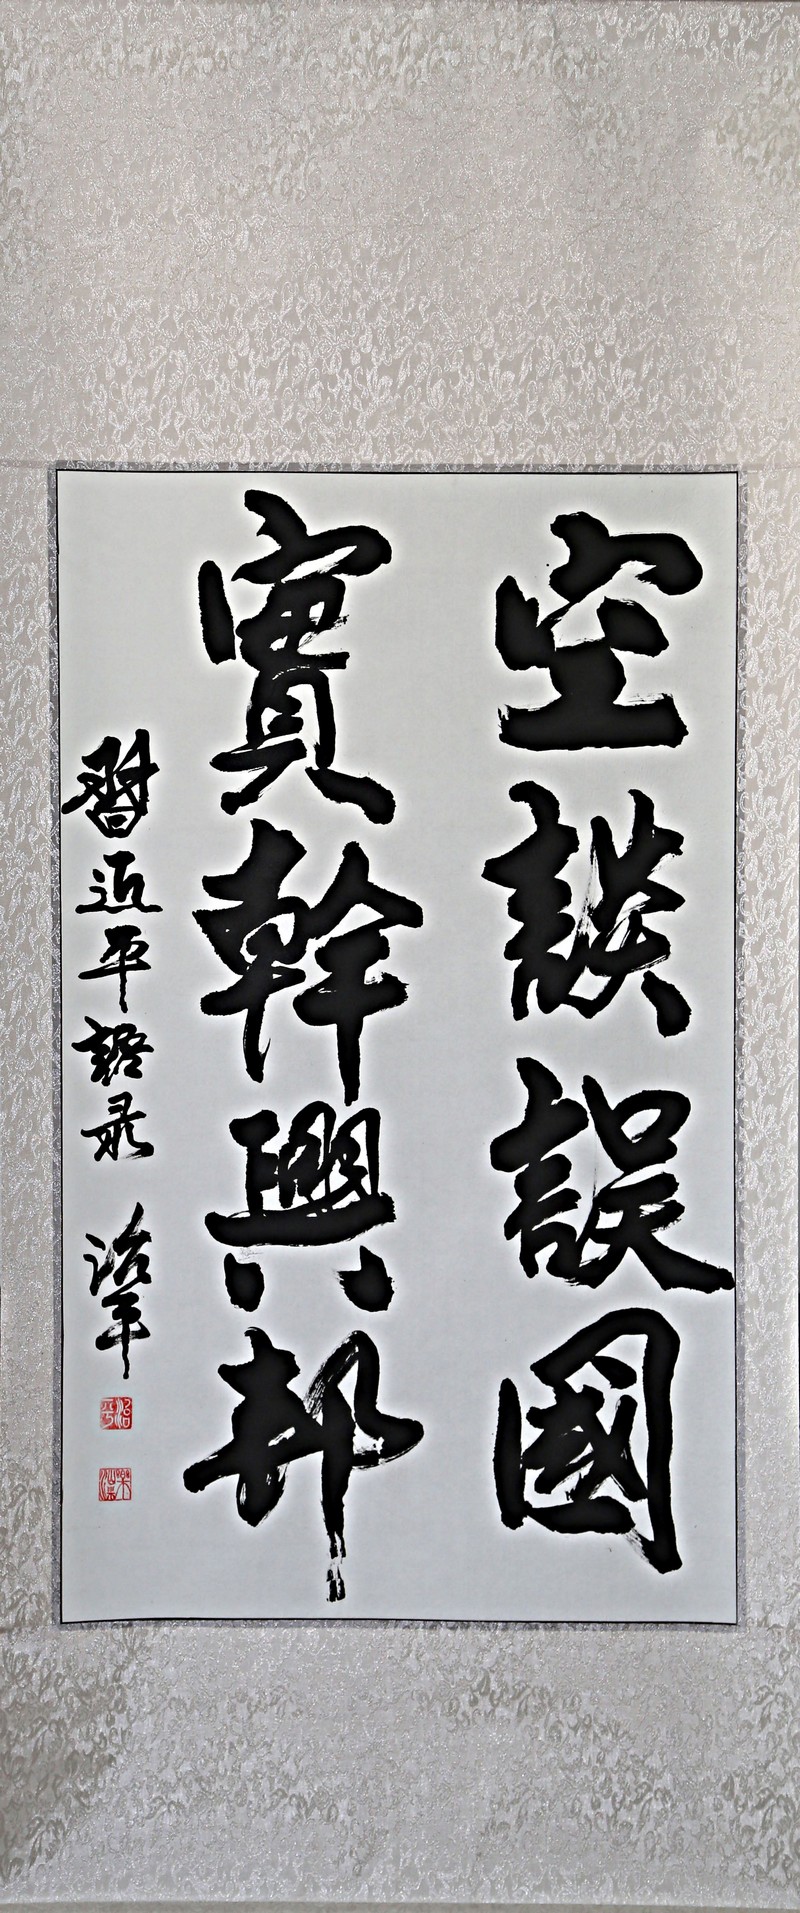 空談誤國
實幹興邦
習近平語录 治平